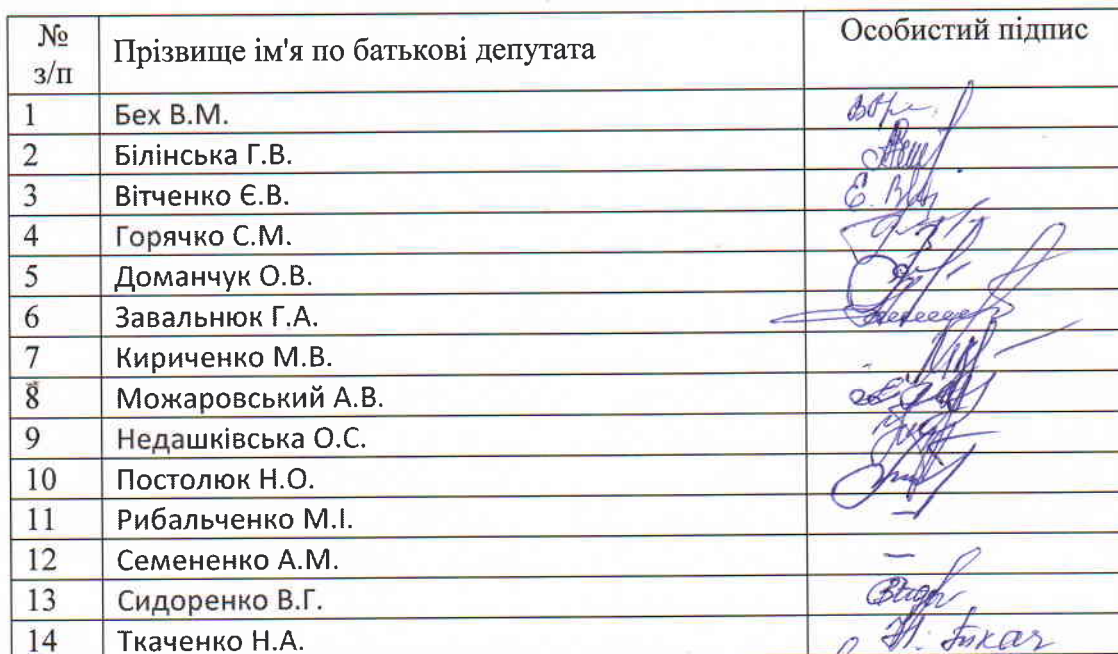 № з/п Прізвище ім'я по батькові депутата Особистий підпис
1 Бех В.М.
2 Білінська Г.В.
3 Вітченко Є.В.
4 Горячко С.М.
5 Доманчук О.В.
6 Завальнюк Г.А.
7 Кириченко М.В.
8 Можаровський А.В.
9 Недашківська О.С.
10 Постолюк Н.О.
11 Рибальченко М.І. –
12 Семененко А.М. –
13 Сидоренко В.Г.
14 Ткаченко Н.А.